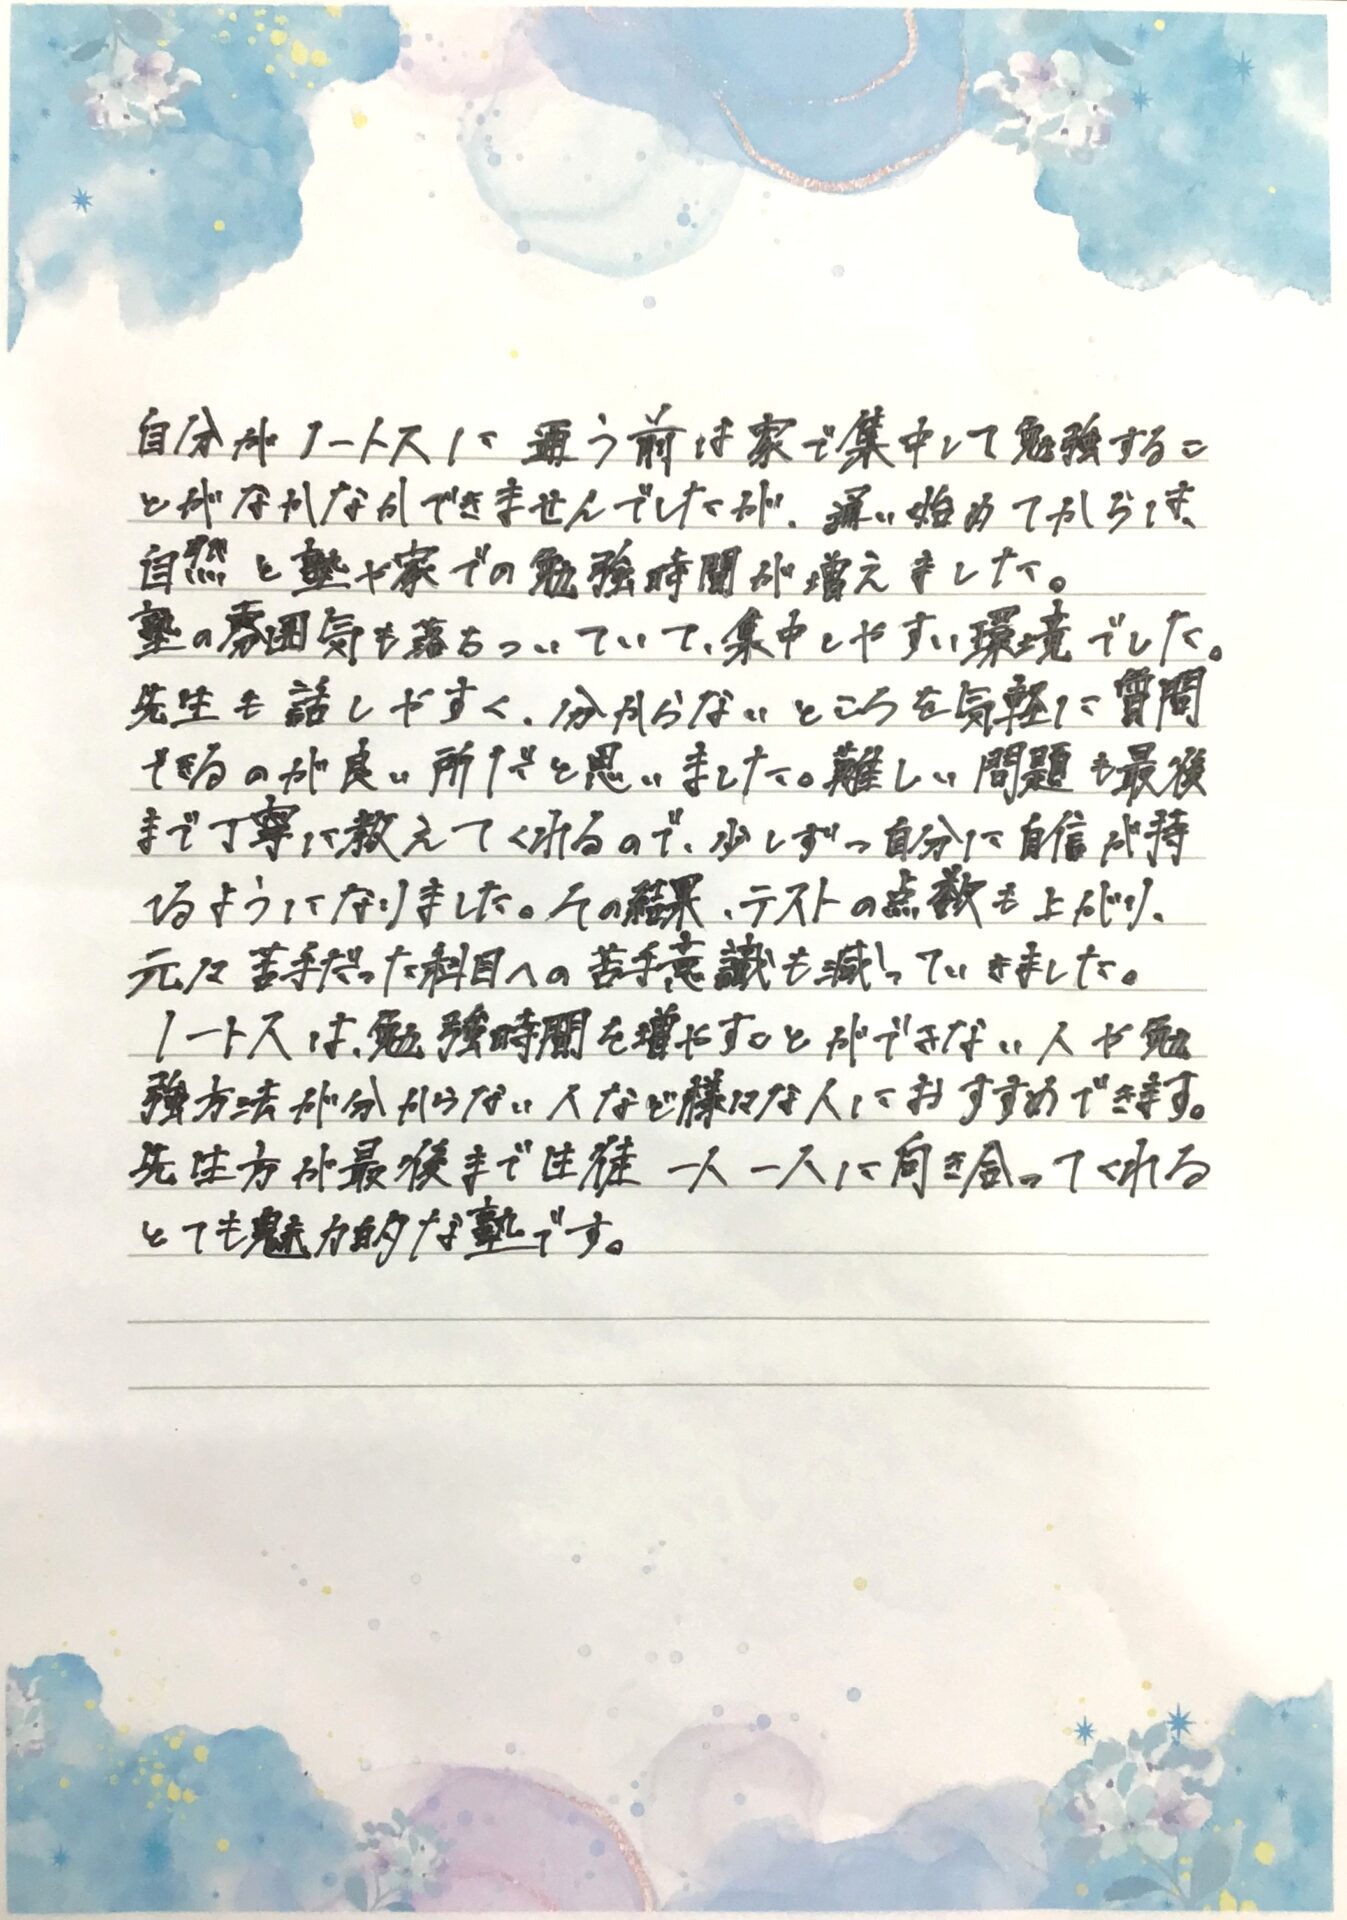 自分がノートスに通う前は家で集中して勉強するこ
とがなかなかできませんでしたが、通い始めてからは、
自然と塾や家での勉強時間が増えました。
塾の雰囲気も落ちついていて、集中しやすい環境でした。
先生も話しやすく、分からないところを気軽に質問
できるのが良い所だと思いました。難しい問題も最後
まで丁寧に教えてくれるので、少しずつ自分に自信が持
てるようになりました。その結果、テストの点数も上がり、
元々苦手だった科目への苦手意識も減っていきました。
ノートスは、勉強時間を増やすことができない人や勉
強方法が分からない人など様々な人におすすめできます。
先生方が最後まで生徒一人一人に向き合ってくれる
とても魅力的な塾です。